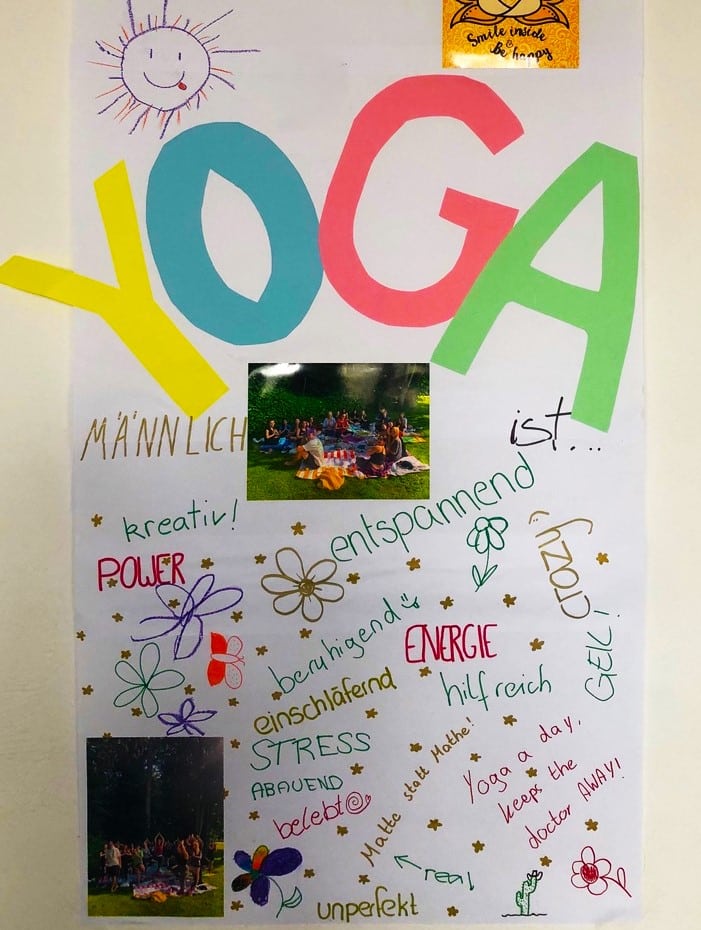 Smile inside
&
be happy
YOGA
MÄNNLICH
ist...
kreativ!
entspannend
POWER
crazy
beruhigend
ENERGIE
GEIL!
einschläfernd
hilfreich
STRESS
ABAUEND
belebt
Matte statt Mathe!
Yoga a day,
keeps the
doctor AWAY!
real
unperfekt